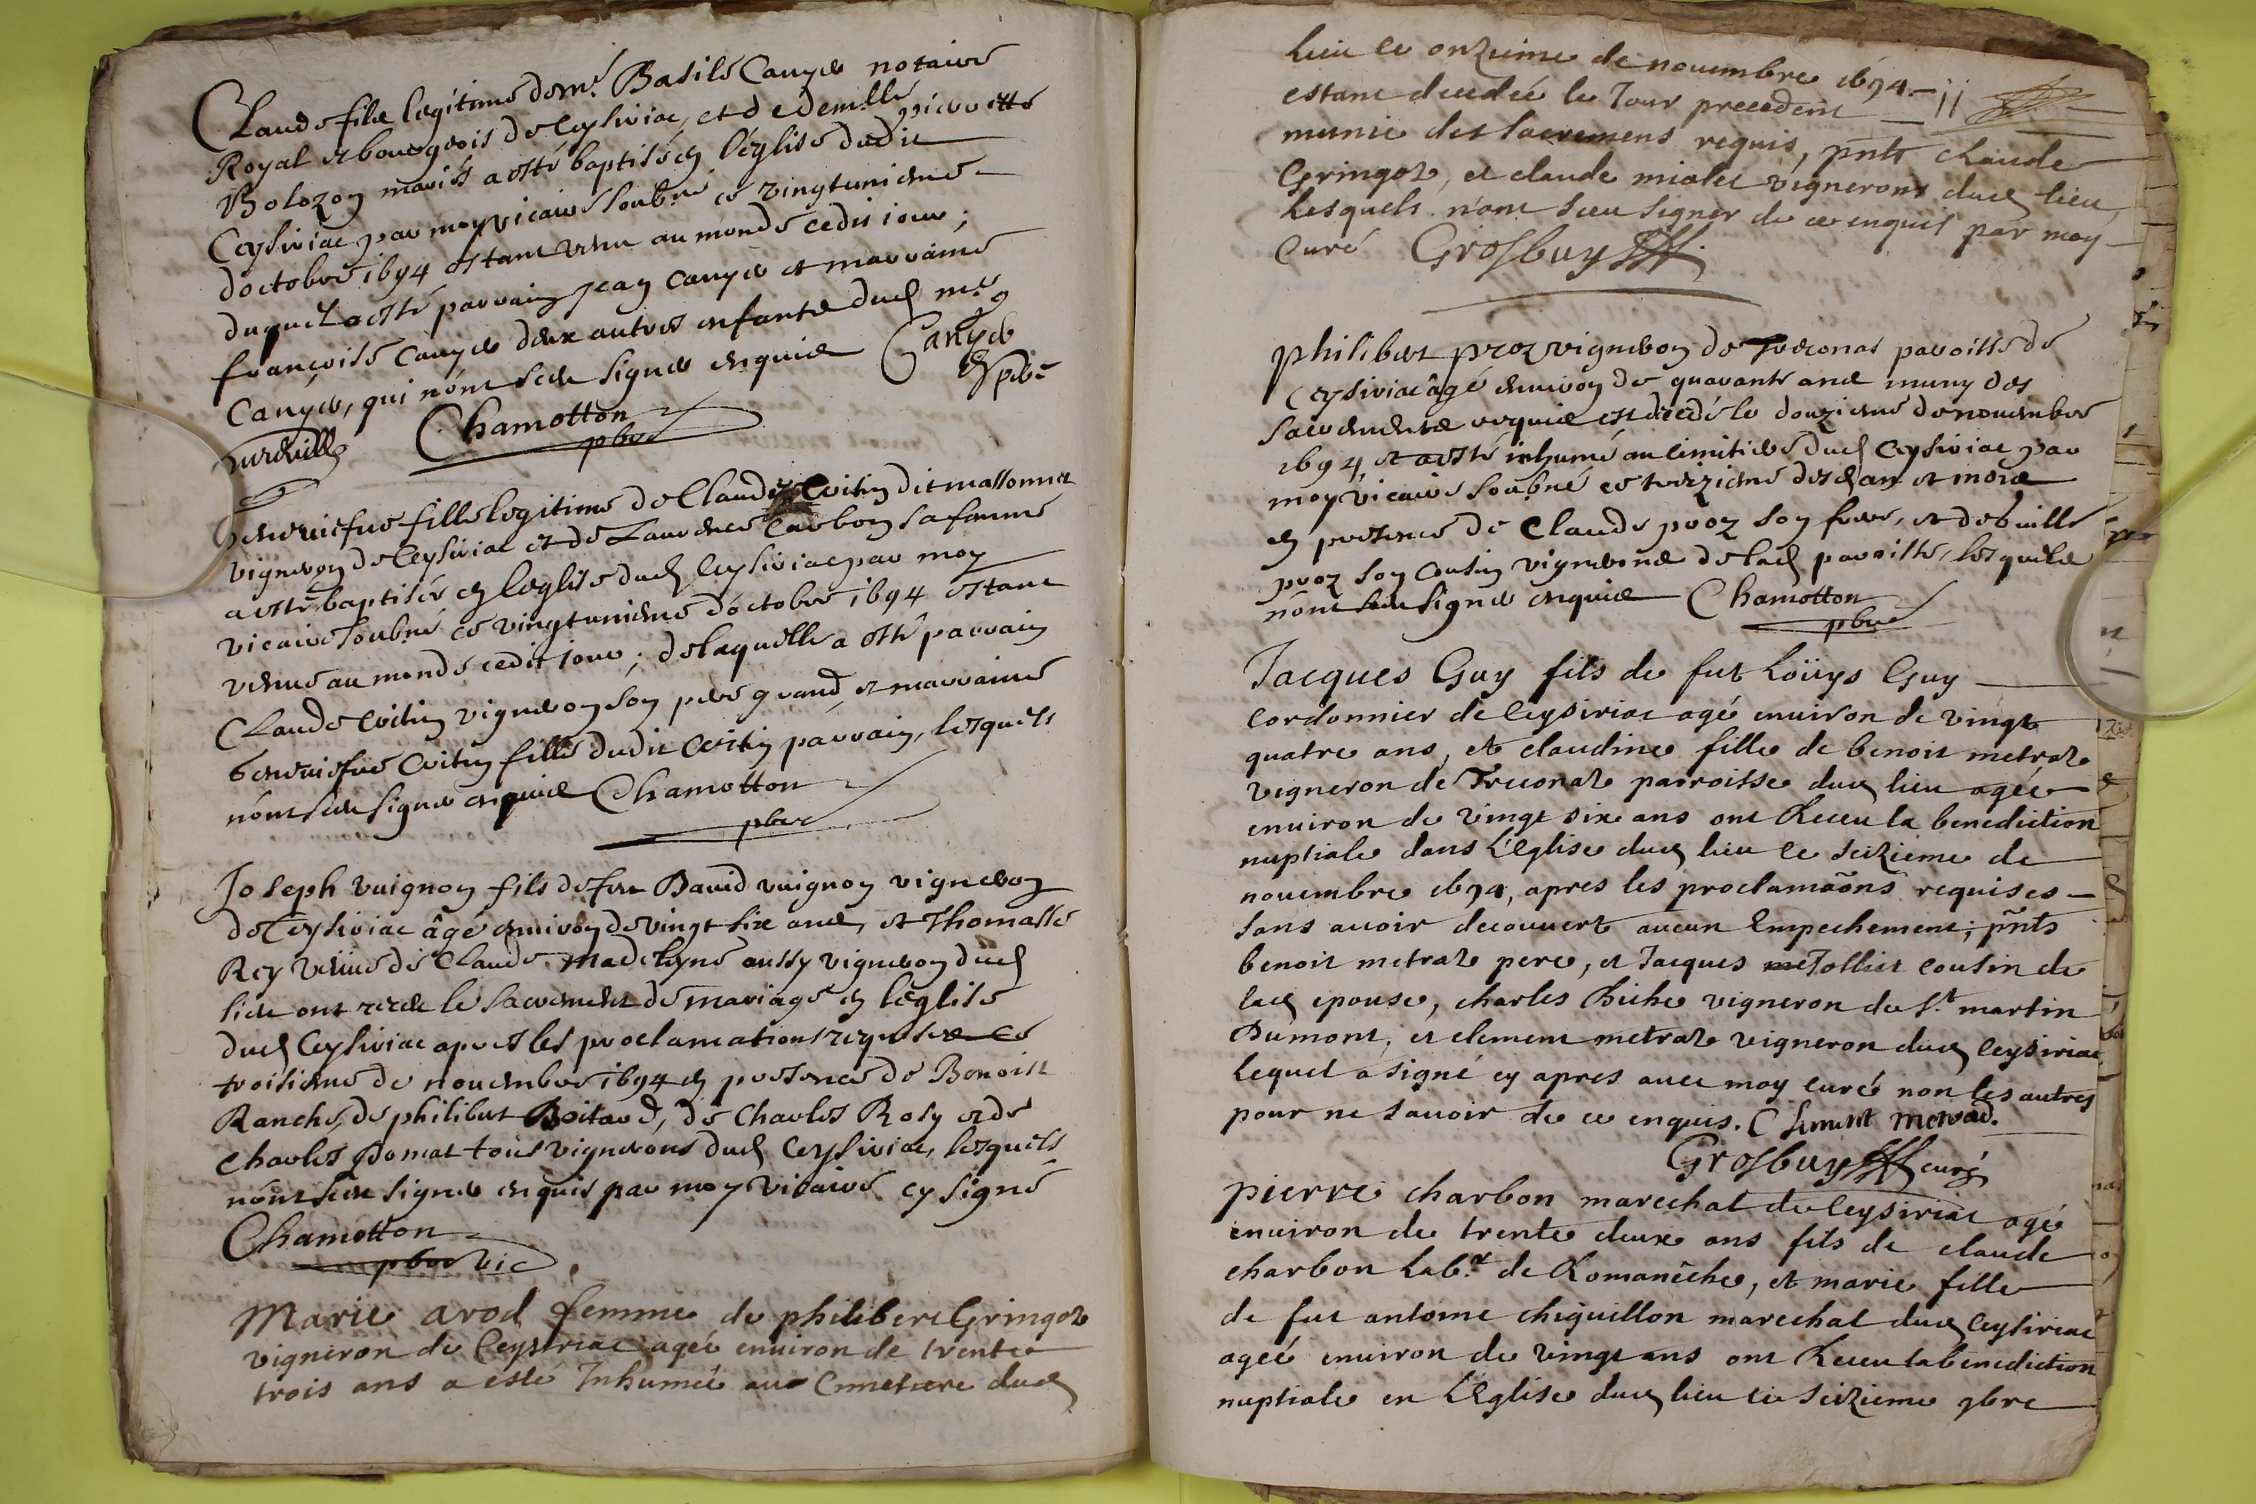 Claude filz legitime de me. Basile Canyer notaire
Royal et bourgeois de Ceysiriac, et de demlle pierrette
Bolozon mariés a esté baptisé en l'église dudit
Ceysiriac par moy vicaire soubné ce vingtunieme
d'octobre 1694 estant venu au monde cedit iour;
duquel a esté parrain Jean Canyer et marraine
françoise Canyer deux autres enfants dud me
Canyer, qui n'ont sceu signer enquis Canyer
Chamotton
pbre
Geneviefve fille legitime de Claude Coitin dit massonnet
vigneron de Ceysiriac et de Laurence Carbon sa femme
a esté baptisée en l'eglise dud Ceysiriac par moy
vicaire soubné ce vingtunieme d'octobre 1694 estant
venue au monde cedit iour; de laquelle a esté parrain
Claude Coitin vigneron son pere grand, et marraine
Geneviefve Coitin fille dudit Coitin parrain, lesquels
n'ont sceu signer enquis Chamotton
pbre
Joseph vuignon fils de feu David vuignon vigneron
de Ceysiriac âgé environ de vingt six ans, et Thomasse
Rey veuve de Claude madeleyne aussy vigneron dud
lieu ont receu le sacrement de mariage en l'église
dud Ceysiriac apres les proclamations requises ce
troisieme de novembre 1694 en presence de Benoist
Ranche, de philibert Boitard, de Charles Rosy et de
Charles Domat tous vignerons dud Ceysiriac, lesquels
n'ont sceu signer enquis par moy vicaire cy signé
Chamotton
pbre vic
Marie arod femme de philibert Gringoz
vigneron de Ceysiriac agée environ de trente
trois ans a esté Inhumée au Cimetiere dud
lieu ce onzieme de nouembre 1694.
estant decedée le Jour precedent
munie des sacremens requis, pnts claude
Gringoz, et claude mialet vignerons dud lieu
lesquels n'ont sceu signer de ce enquis par moy
curé Grosbuy
philibert proz vigneron de Treconas paroisse de
Ceysiriac âgé environ de quarante ans muny des
sacrements requis est decedé le douzieme de novembre
1694 et a esté inhumé au cimitiere dud Ceysiriac par
moy vicaire soubné ce treizieme desd an et mois
en presence de Claude proz son frere, et de
proz son cousin vignerons de lad paroisse, lesquels
n'ont sceu signer enquis Chamotton
pbre
Jacques Guy fils de fut Loüys Guy
cordonnier de Ceysiriac agé enuiron de vingt
quatre ans, et claudine fille de benoit metraz
vigneron de Treconaz parroisse dud lieu agée
enuiron de vingt six ans ont Receu la benediction
nuptiale dans L'Eglise dud lieu ce seizieme de
nouembre 1694, apres les proclamaõns requises
sans auoir decouuert aucun Empechement; pñts
benoit metraz pere, et Jacques Tollier cousin de
lad epouse, charles Biche vigneron de St. martin
Dumont, et clement metraz vigneron dud Ceysiriac
lequel a signé cy apres auec moy curé non les autres
pour ne sauoir de ce enquis. Clement Metrad.
Grosbuy curé
pierre charbon marechal de Ceysiriac agé
enuiron de trente deux ans fils de claude
charbon Labr. de Romanêche, et marie fille
de fut antoine chiquillon marechal dud Ceysiriac
agée enuiron de vingt ans ont Receu la benediction
nuptiale en L'Eglise dud lieu ce seizieme 9bre